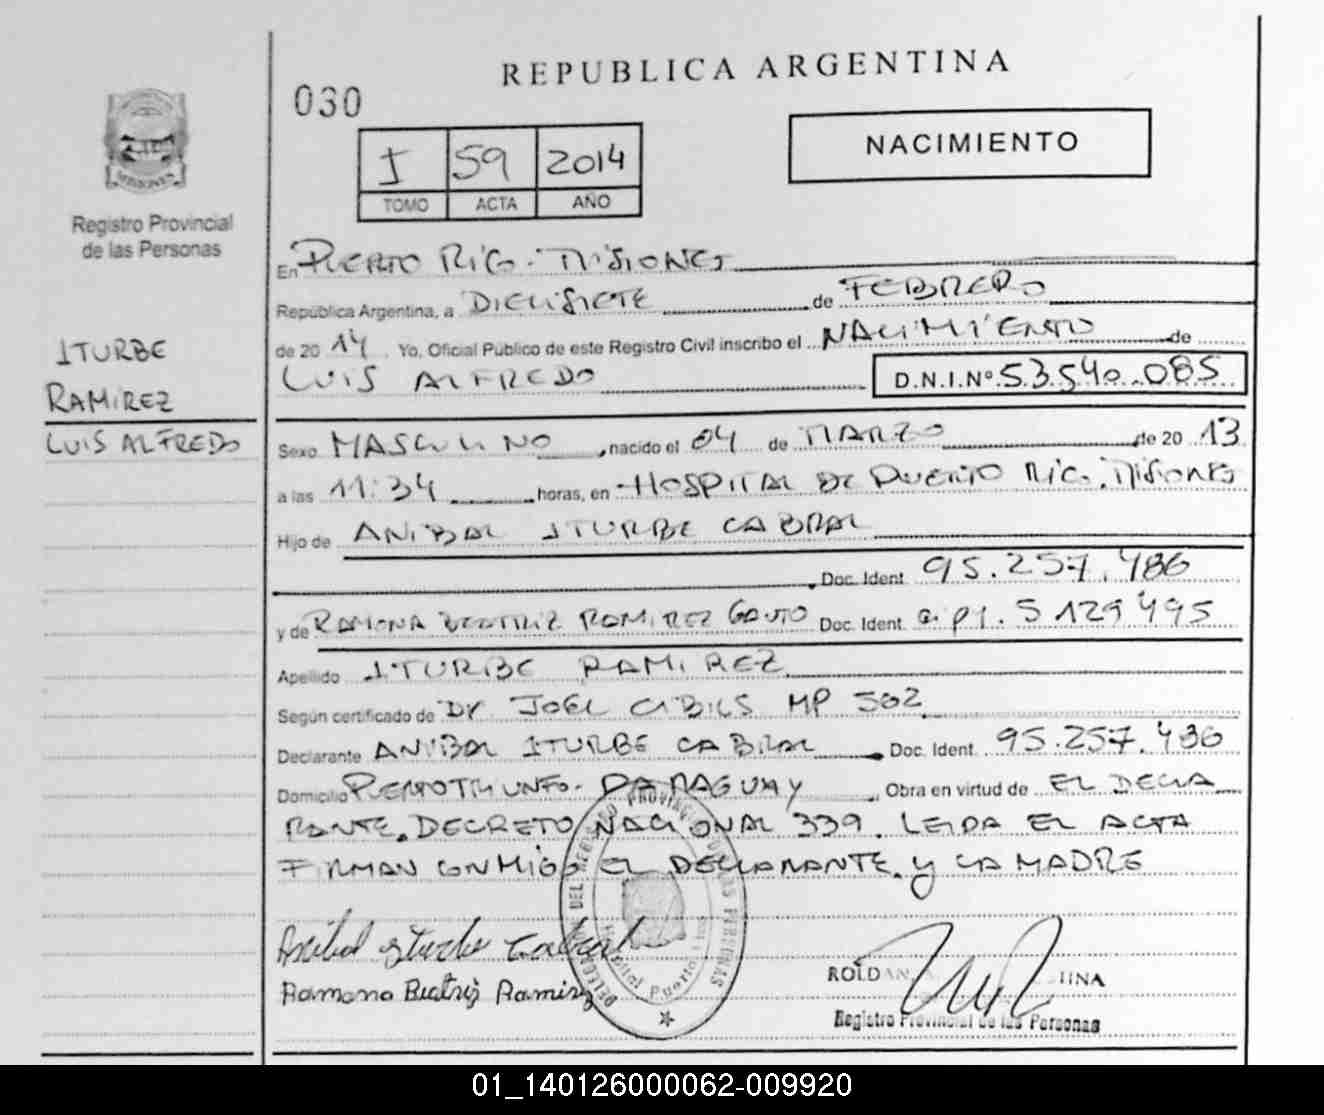 REPUBLICA ARGENTINA
030
NACIMIENTO
I 59 2014
TOMO ACTA AÑO
MISIONES
Registro Provincial
de las Personas
ITURBE
RAMIREZ
LUIS ALFREDO
En PUERTO RICO. MISIONES
República Argentina, a DIECISIETE de FEBRERO
de 20 14 Yo, Oficial Público de este Registro Civil inscribo el NACIMIENTO de
LUIS ALFREDO D.N.I.Nº 53.540.085
Sexo MASCULINO, nacido el 04 de MARZO de 20 13
a las 11:34 horas, en HOSPITAL DE PUERTO RICO. MISIONES
Hijo de ANIBAL ITURBE CABRAL
Doc. Ident. 95.257.486
y de RAMONA BEATRIZ RAMIREZ GAUTO Doc. Ident. 5129495
Apellido ITURBE RAMIREZ
Según certificado de Dr JOEL CIBILS MP 502
Declarante ANIBAL ITURBE CABRAL Doc. Ident. 95.257.486
Domicilio PUERTO TRIUNFO. PARAGUAY, Obra en virtud de EL DECLA
RANTE. DECRETO NACIONAL 339. LEIDA EL ACTA
FIRMAN CONMIGO EL DECLARANTE. y LA MADRE
Anibal Iturbe Cabral
Ramona Beatriz Ramirez
DELEGACION DEL REGISTRO PROVINCIAL DE LAS PERSONAS
Hospital Puerto Rico
ROLDAN
Registro Provincial de las Personas
01_140126000062-009920